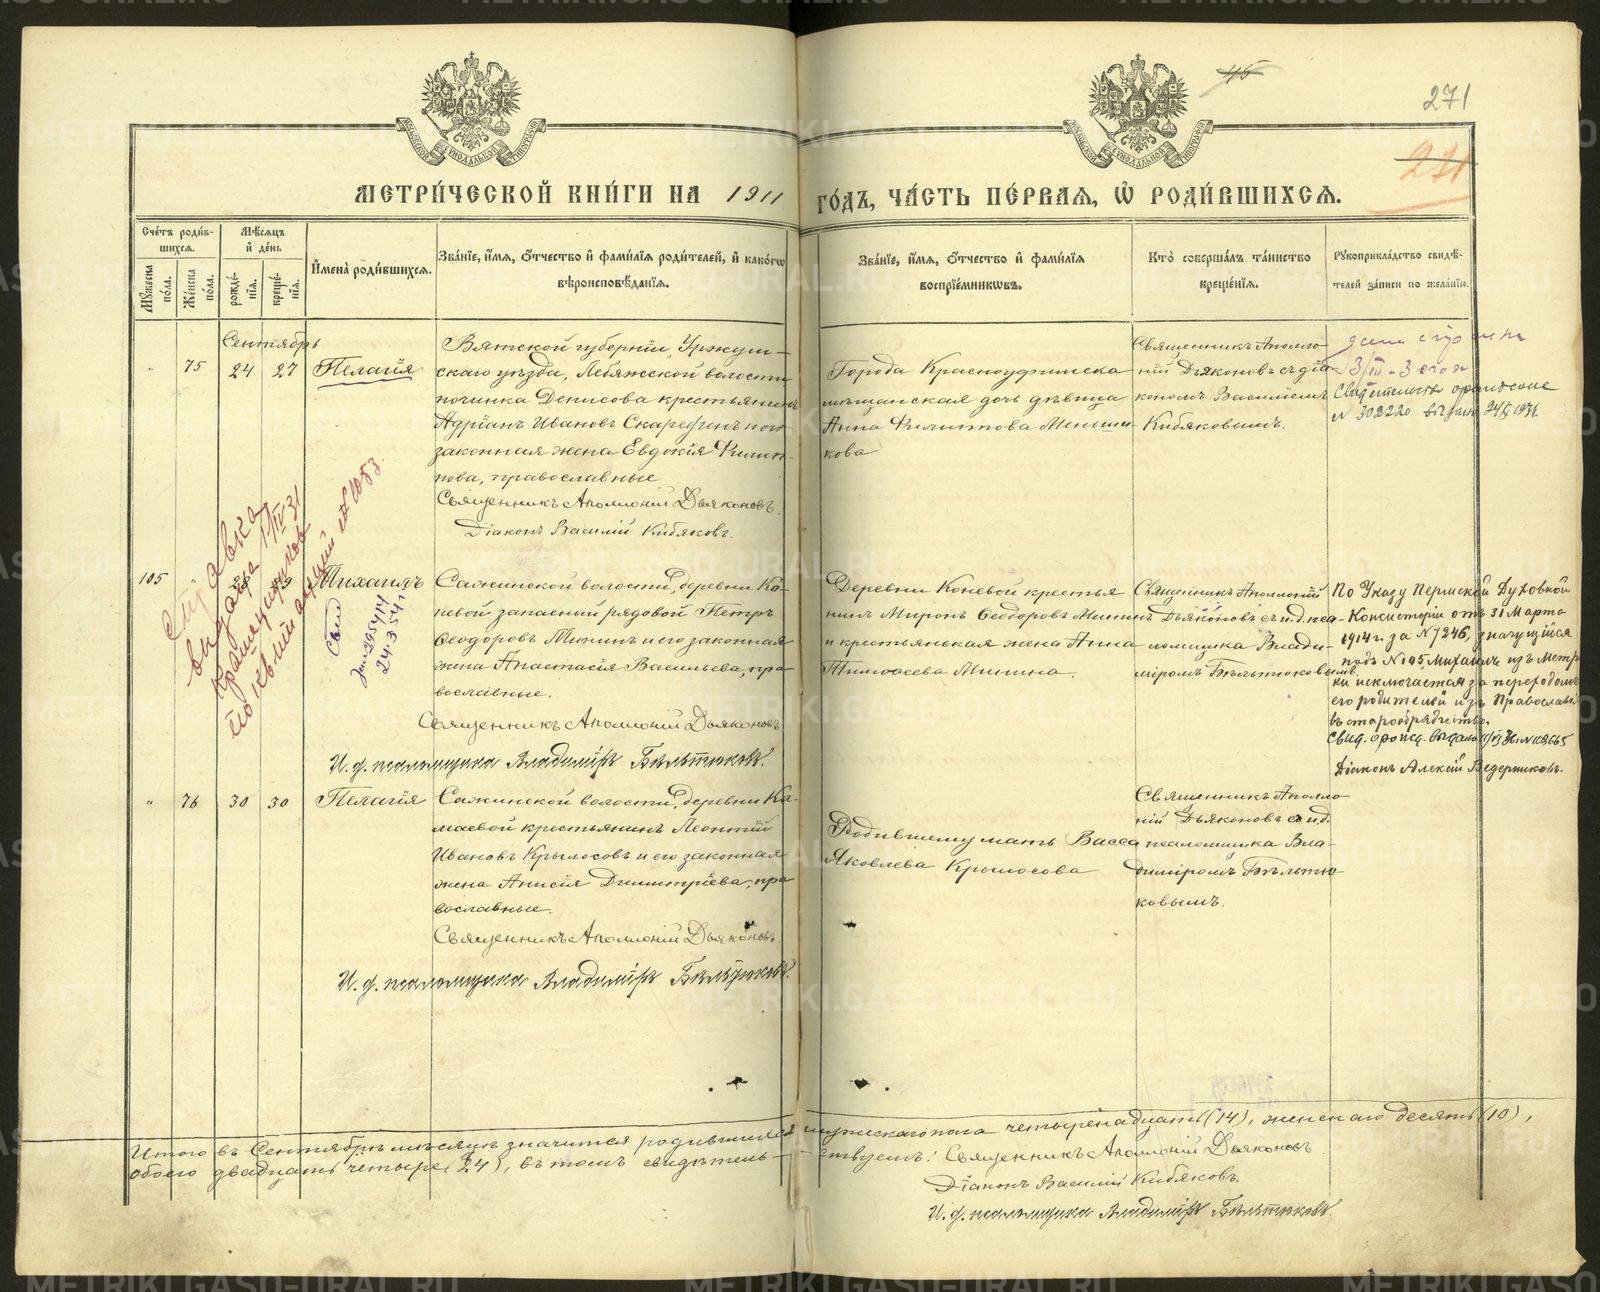 45
271
271
МЕТРИ́ЧЕСКОЙ КНИ́ГИ НА 1911 ГО́ДЪ, ЧА́СТЬ ПЕ́РВАЯ, Ѡ҆ РОДИ́ВШИХСЯ.
Сче́тъ роди́вшихся.
Мѣ́сяцъ и҆ де́нь
Му́жеска по́ла.
Же́нска по́ла.
рожде́нїя.
креще́нїя.
И҆мена̀ роди́вшихся.
Зва́нїе, и҆́мя, ѻ҆́тчество и҆ фами́лїя роди́телей, и҆ како́гѡ вѣроисповѣ́данїя.
Зва́нїе, и҆́мя, ѻ҆́тчество и҆ фами́лїя воспрїе́мникѡвъ.
Кто̀ соверша́лъ та́инство креще́нїя.
Рꙋкоприкла́дство свидѣ́телей за́писи по жела́нїю.
Сентябрь
" 75 24 27 Пелагія
Вятской губерніи, Уржум-
скаго уѣзда, Лебяжской волости
починка Денисова крестьянинъ
Адріанъ Ивановъ Скарединъ и его
законная жена Евдокія Филип-
пова, православные
Священникъ Аполлоній Дьяконовъ.
Діаконъ Василій Кибяковъ.
Города Красноуфимска
мѣщанская дочь дѣвица
Анна Филиппова Меньши-
кова
Священникъ Аполло-
ній Дьяконовъ съ діа-
кономъ Василіемъ
Кибяковымъ.
3/III-3
Свидетельство
N 302220
Справка
выдана 1/IV 31
N 1083
105 " 28 29 Михаилъ
Сажинской волости, деревни Ко-
невой запасный рядовой Петръ
Ѳеодоровъ Мининъ и его законная
жена Анастасія Васильева, пра-
вославные.
Священникъ Аполлоній Дьяконовъ
И. д. псаломщика Владиміръ Бѣльтюковъ.
Деревни Коневой крестья-
нинъ Миронъ Ѳеодоровъ Мининъ
и крестьянская жена Анна
Тимоѳеева Минина.
Священникъ Аполлоній
Дьяконовъ съ и.д. пса-
ломщика Влади-
міромъ Бѣльтюковымъ.
По Указу Пермской Духовной
Консисторіи отъ 31 Марта
1914 г. за N 7246, значущійся
подъ N 105 Михаилъ изъ метри-
ки исключается за переходомъ
его родителей изъ Православія
въ старообрядчество.
Діаконъ Алексій Ведерниковъ.
" 76 30 30 Пелагія
Сажинской волости, деревни Ка-
маевой крестьянинъ Леонтій
Ивановъ Крылосовъ и его законная
жена Анисія Димитріева, пра-
вославные.
Священникъ Аполлоній Дьяконовъ
И. д. псаломщика Владиміръ Бѣльтюковъ.
Родившему мать Васса
Яковлева Крылосова
Священникъ Аполло-
ній Дьяконовъ съ и.д.
псаломщика Вла-
диміромъ Бѣльтю-
ковымъ.
Итого въ Сентябрѣ мѣсяцѣ значится родившихся мужескаго пола четырнадцать (14), женскаго десять (10),
обоего двадцать четыре (24), въ томъ свидѣтель-ствуемъ: Священникъ Аполлоній Дьяконовъ
Діаконъ Василій Кибяковъ.
И. д. псаломщика Владиміръ Бѣльтюковъ.